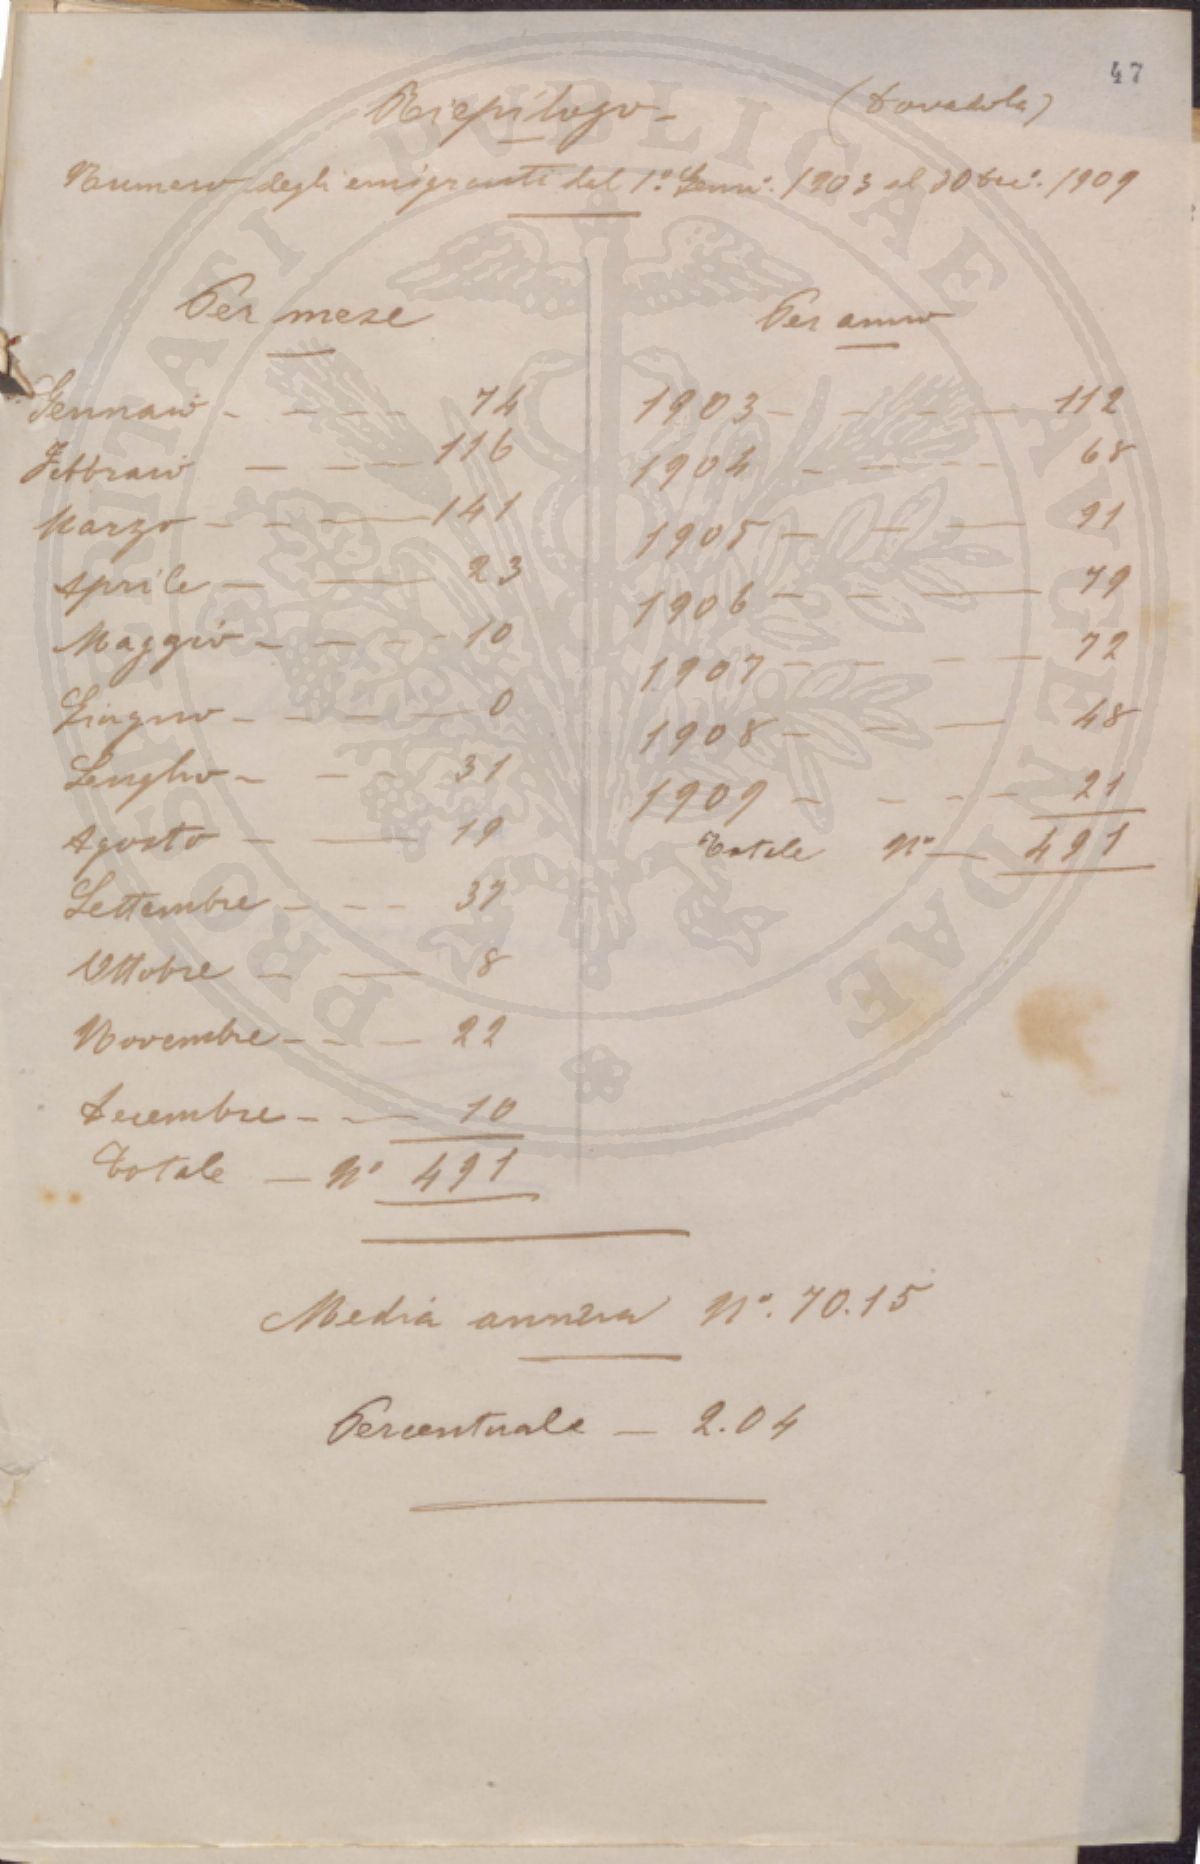 47
Riepilogo - (Dovadola)
Numero degli emigranti dal 1.° Genn.° 1903 al 1909
Per mese
Gennaio - - - - 74
Febbraio - - - 116
Marzo - - - 141
Aprile - - 23
Maggio - - - - 10
Giugno - - - - 0
Luglio - - - 31
Agosto - - 19
Settembre - - - 37
Ottobre - - 8
Novembre - - - 22
Decembre - - 10
Totale - N° 491
Per anno
1903 - - - - 112
1904 - - - - 68
1905 - - - 91
1906 - - - 79
1907 - - - - 72
1908 - - - 48
1909 - - - - 21
Totale N° - 491
Media annua N°. 70.15
Percentuale - 2.04
PROSPERITATI PUBLICAE AVGENDAE